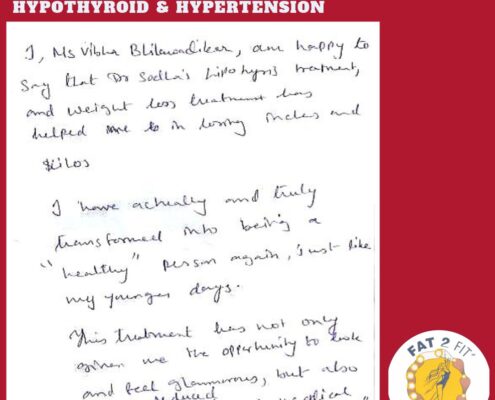 HYPOTHYROID & HYPERTENSION
I, Ms Vibha, am happy to
say that Dr Sodha's treatment,
and weight loss treatment has
helped me to in losing inches and
kilos
I have actually and truly
transformed into being a
"healthy" person again, just like
my younger days.
This treatment has not only
given me the opportunity to look
and feel glamorous, but also
reduced
FAT 2 FIT